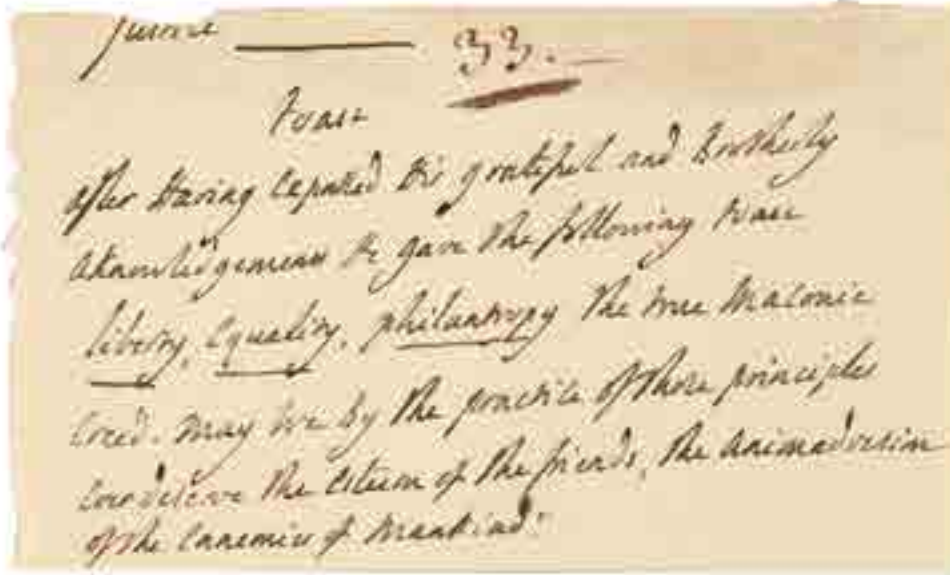 33.
Toast
after Having Expressed His grateful and Brotherly
aknowledgement He gave the following Toast
liberty, Equality, philantropy the true Masonic
Creed. may we by the practice of those principles
deserve the Esteem of the friends, the animadversion
of the Ennemies of Mankind.